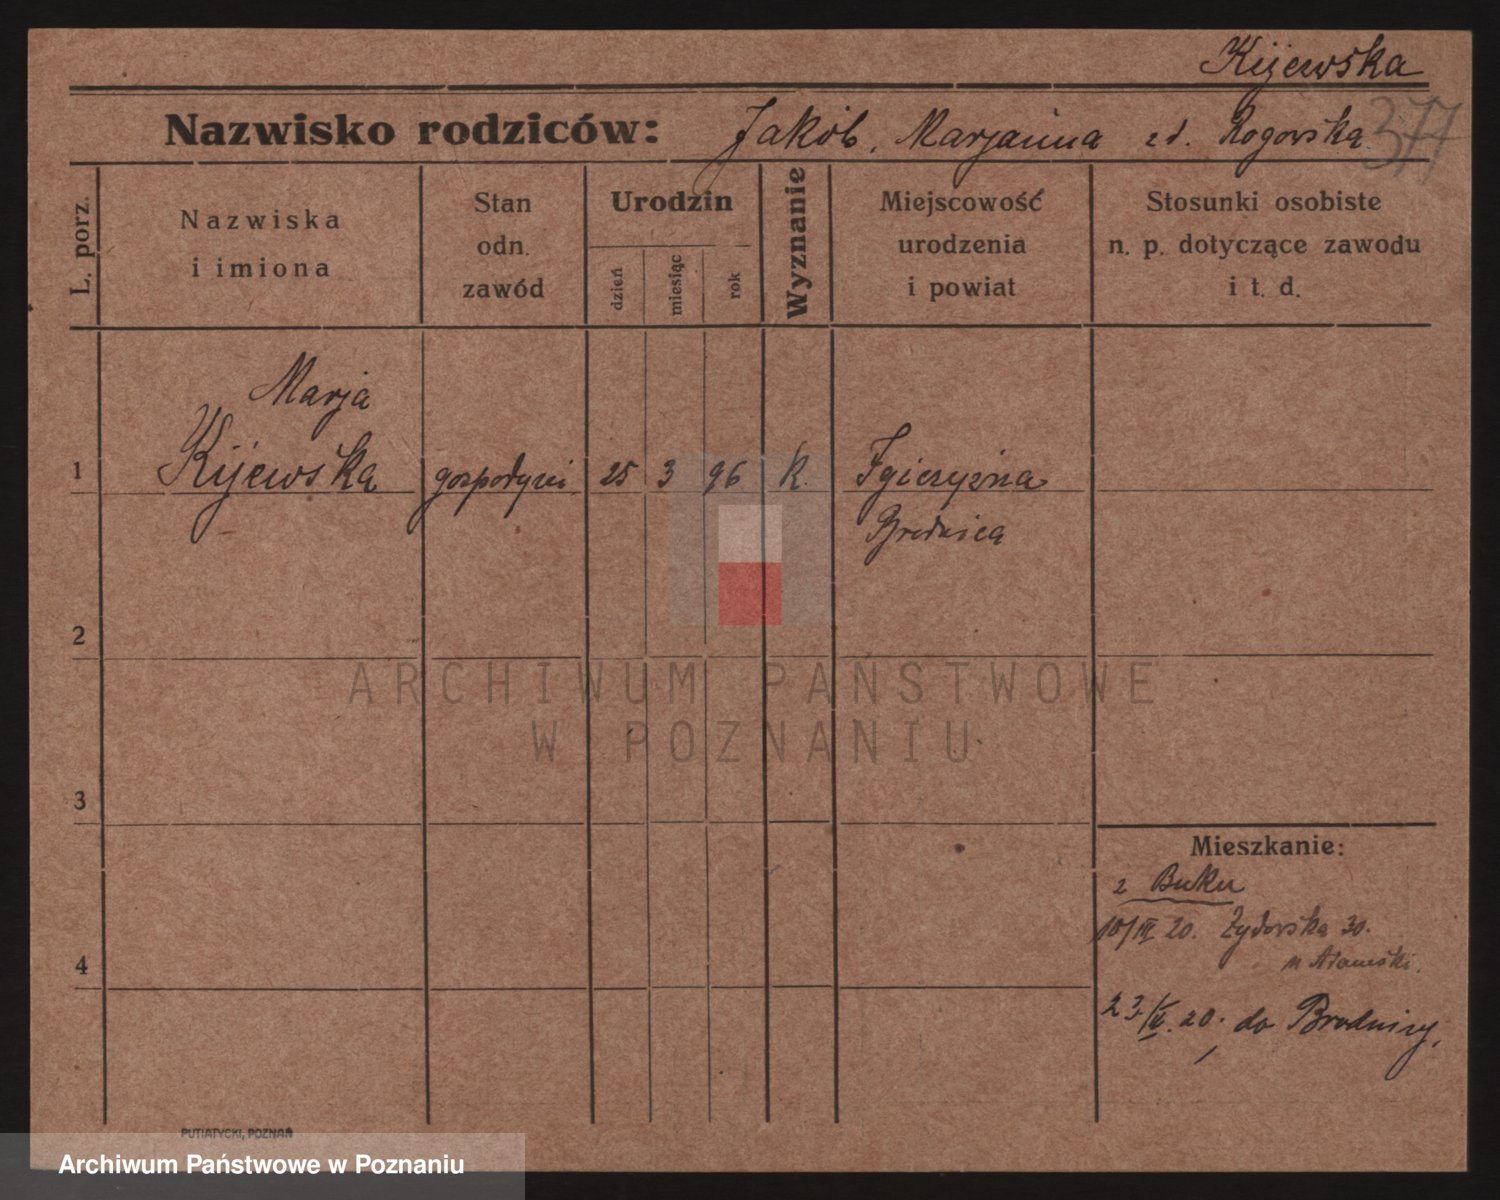 Kijewska
Nazwisko rodziców: Jakób, Marjanna zd. Rogowska
377
L. porz.
Nazwiska
i imiona
Stan
odn.
zawód
Urodzin
dzień
miesiąc
rok
Wyznanie
Miejscowość
urodzenia
i powiat
Stosunki osobiste
n. p. dotyczące zawodu
i t. d.
Marja
1 Kijewska gospodyni 25 3 96 K.
Brodnica
2
ARCHIWUM PAŃSTWOWE
W POZNANIU
3
Mieszkanie:
z Buku
10/III 20. Żydowska 30.
4
23/V. 20. do Brodnicy.
PUTIATYCKI, POZNAŃ
Archiwum Państwowe w Poznaniu